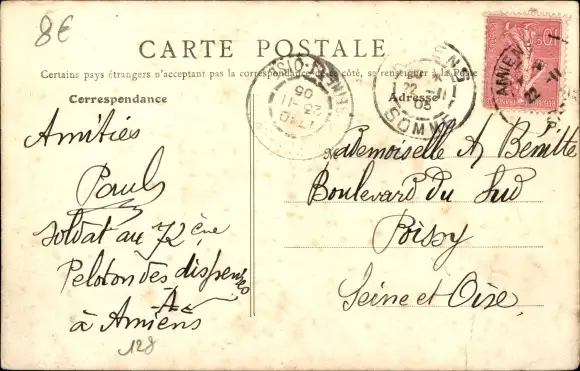 8€
CARTE POSTALE
Certains pays étrangers n'acceptent pas la correspondance de ce côté, se renseigner à la Poste
Correspondance
Adresse
Amitiés
Paul
soldat au 72 ème
Peloton des dispensés
à Amiens
128
Mademoiselle A
Boulevard du Sud
Poissy
Seine et Oise
AMIENS
22 -11
05
SOMME
17 30
23 -11
05
AMIENS
22 -11
10